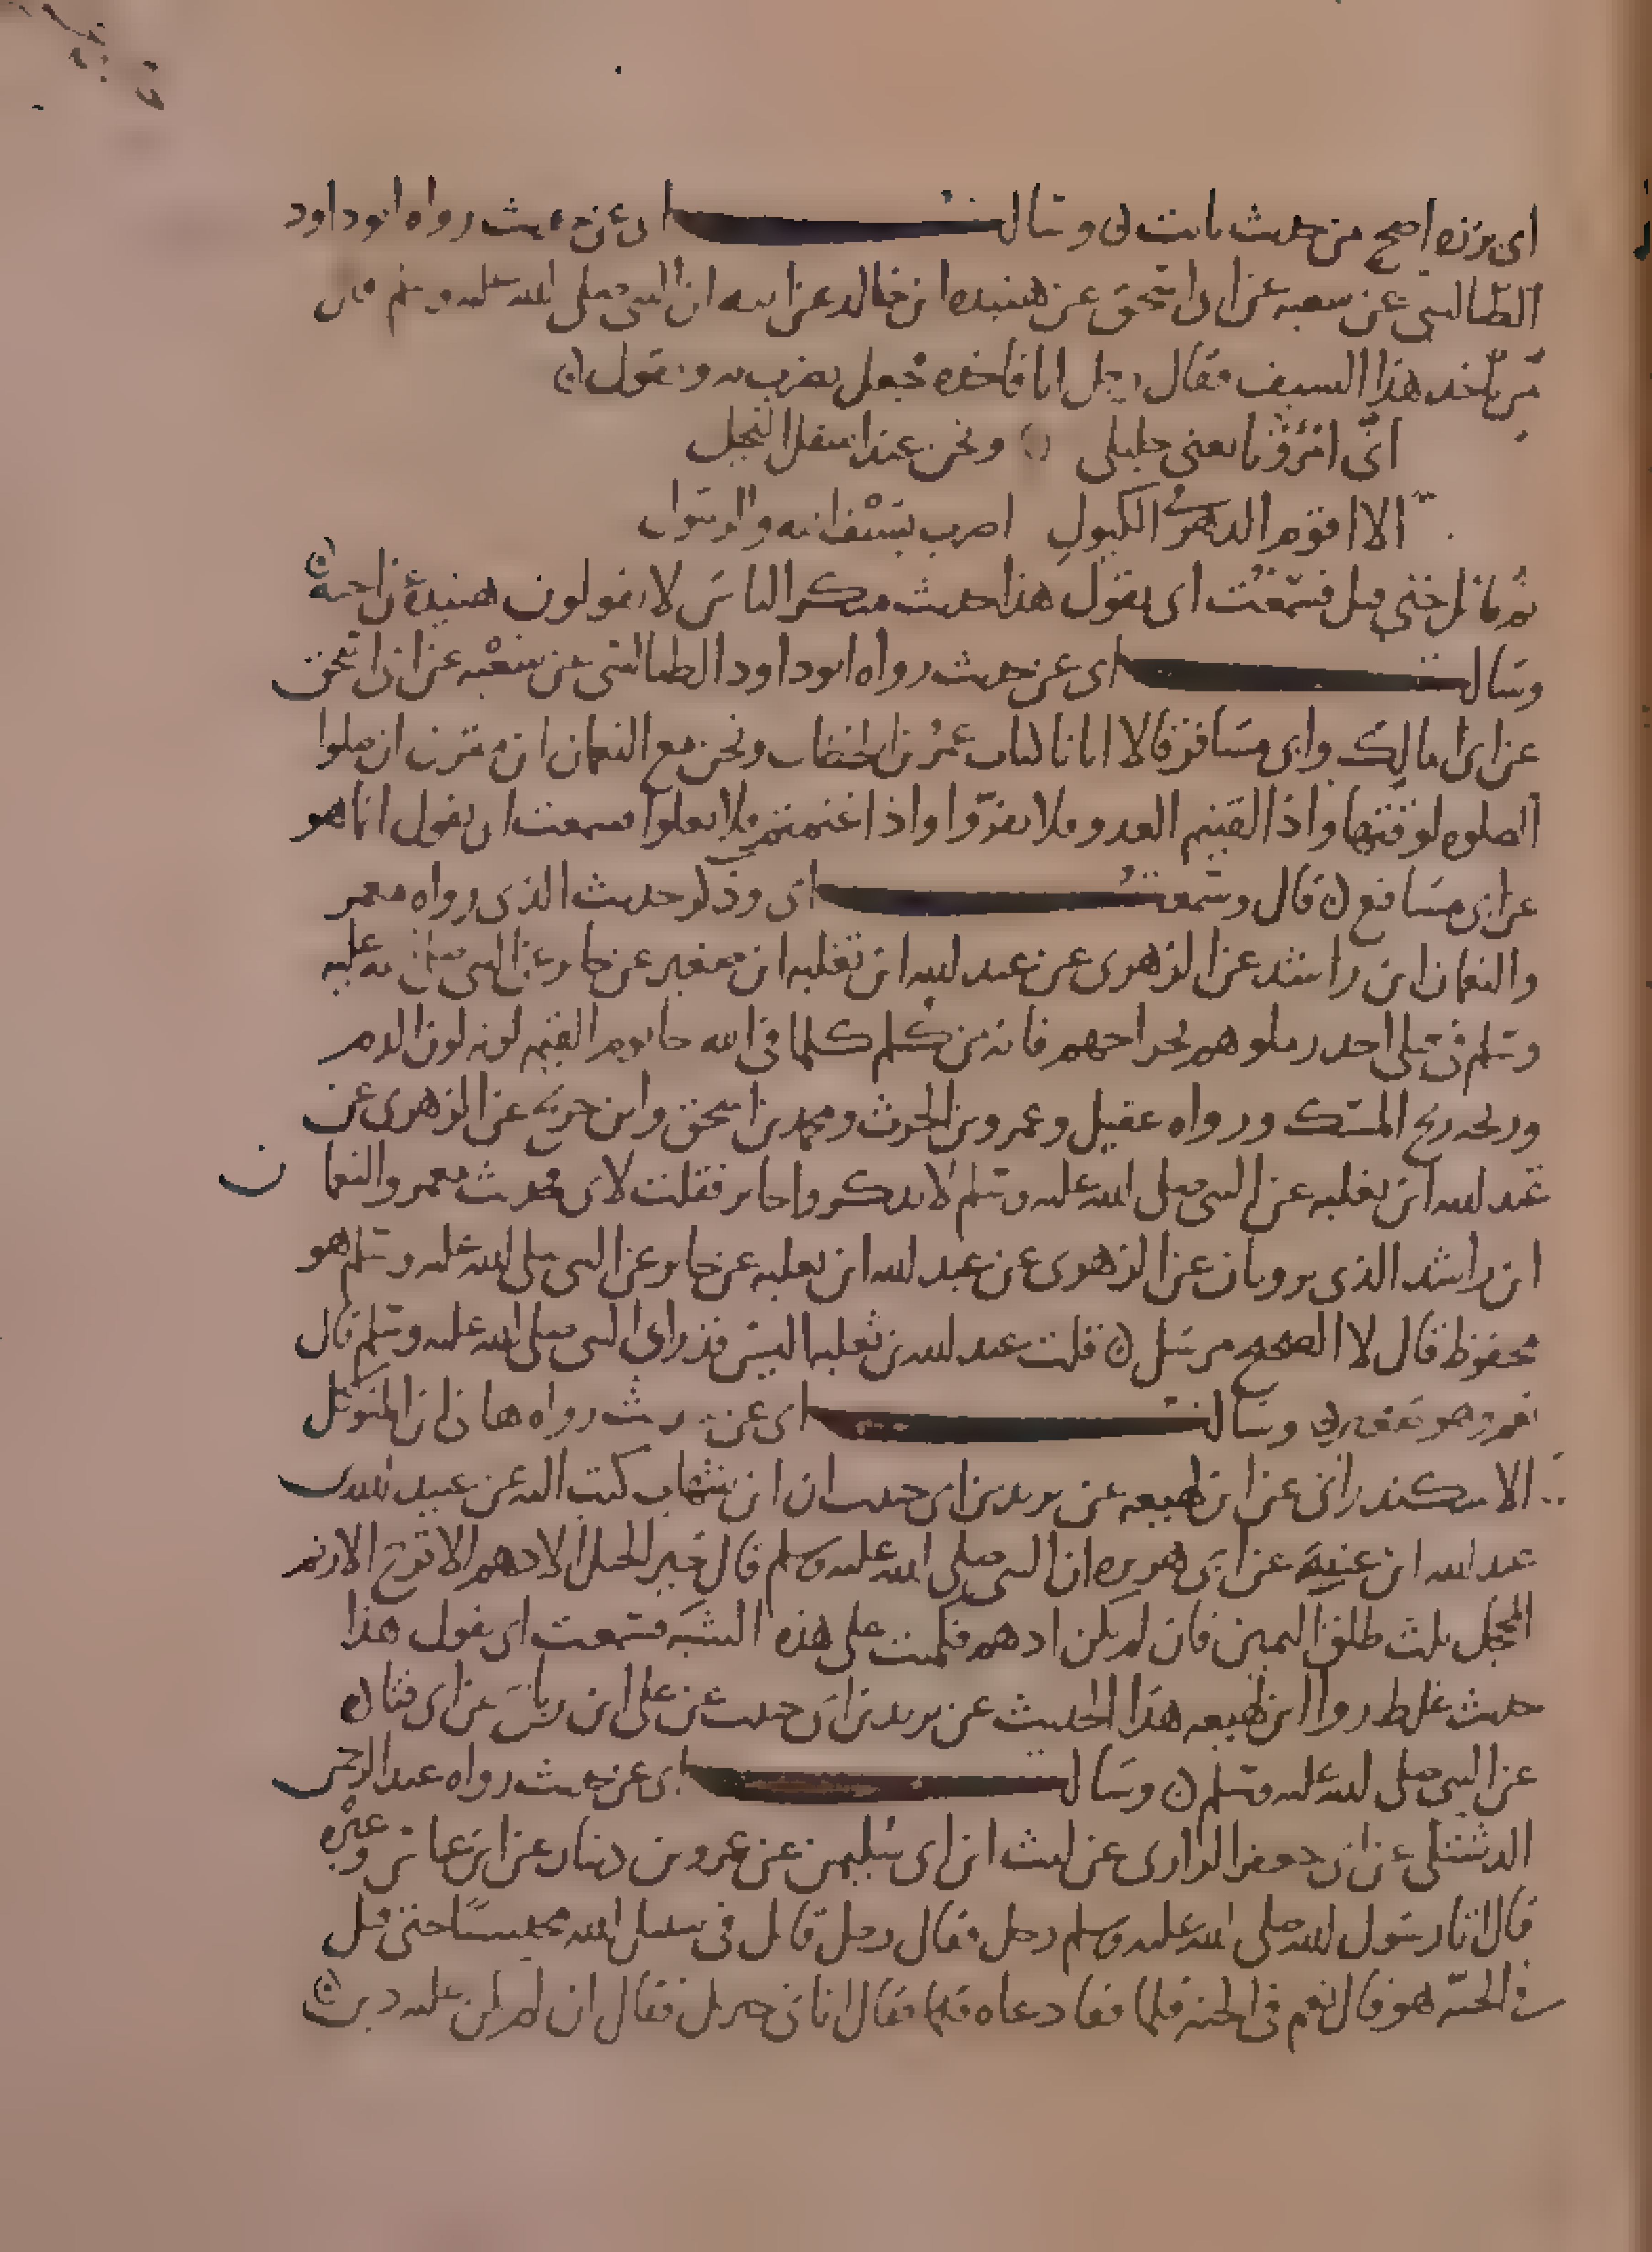 ابى برزه اصح من حديث ثابت ○ وسالت ابى عن حديث رواه ابو داود
الطيالسى عن شعبه عن ابى اسحق عن هنيده ابن خالد عن ابيه ان النبى صلى الله عليه وسلم قال
من ياخذ هذا السيف فقال رجل انا فاخذه فجعل يضرب به ويقول ○
انى امرؤ بايعنى خليلى ○ ونحن عند اسفل النخيل
الا اقوم الدهر فى الكبول اضرب بسيف الله والرسول
ثم قاتل حتى قتل فسمعت ابى يقول هذا حديث منكر الناس لا يقولون هنيدة
وسالت ابى عن حديث رواه ابو داود الطيالسى عن شعبه عن ابى اسحق
عن ابى مالك وابى مسافر قالا اتانا كتاب عمر بن الخطاب ونحن مع النعمان ابن مقرن ان صلوا
الصلوه لوقتها واذا لقيتم العدو فلا تفروا واذا غنمتم فلا تغلوا فسمعت ابى يقول انما هو
عن ابى مسافع ○ قال وسمعت ابى وذكر حديث الذى رواه معمر
والنعمان ابن راشد عن الزهرى عن عبد لله ابن ثعلبه ابن صعير عن جابر عن النبى صلى الله عليه
وسلم فى قتلى احد زملوهم بجراحهم فانه من كلم كلما فى الله جا يوم القيمه لونه لون الدم
وريحه ريح المسك ورواه عقيل وعمرو بن الحرث ومحمد بن اسحق وابن جريج عن الزهرى عن
عبد لله ابن ثعلبه عن النبى صلى الله عليه وسلم لا يذكروا جابر فقلت لابى فحديث معمر والنعمان
ابن راشد الذى يرويان عن الزهرى عن عبد لله ابن ثعلبه عن جابر عن النبى صلى الله عليه وسلم هو
محفوظ قال لا الصحيح مرسل ○ قلت عبد لله بن ثعلبه اليس قد راى النبى صلى الله عليه وسلم قال
نعم وهو صغير ○ وسالت ابى عن حديث رواه هانى ابن المتوكل
الاسكندرانى عن ابن لهيعه عن يزيد بن ابى حبيب ان ابن شهاب كتب اليه عن عبيد الله بن
عبد الله ابن عتبة عن ابى هريره ان النبى صلى الله عليه وسلم قال خير الخيل الادهم الاقرح الارثم
المحجل ثلث طلق اليمين فان لم يكن ادهم فكميت على هذه الشيه فسمعت ابى يقول هذا
حديث غلط روا ابن لهيعه هذا الحديث عن يزيد بن ابى حبيب عن على ابن رباح عن ابى قتاده
عن النبى صلى لله عليه وسلم ○ وسالت ابى عن حديث رواه عبد الرحمن
الدشتكى عن ابى جعفر الرازى عن ليث ابن ابى سليم عن عمرو بن دينار عن ابن عباس وغيره
قال اتا رسول لله صلى الله عليه وسلم رجل فقال رجل قاتل فى سبيل الله محتسبا حتى قتل
فى الجنه هو قال نعم فى الجنه فلما قفا دعاه فقال اتانى جبريل فقال ان لم يكن عليه دين ○